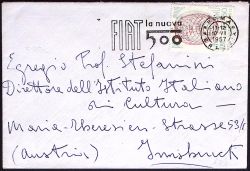 FIAT la nuova
500
11-12
1957
Egregio Prof. Stefanini
Direttore dell'Istituto Italiano
di Cultura -
Maria-Theresien-Strasse
(Austria) Innsbruck